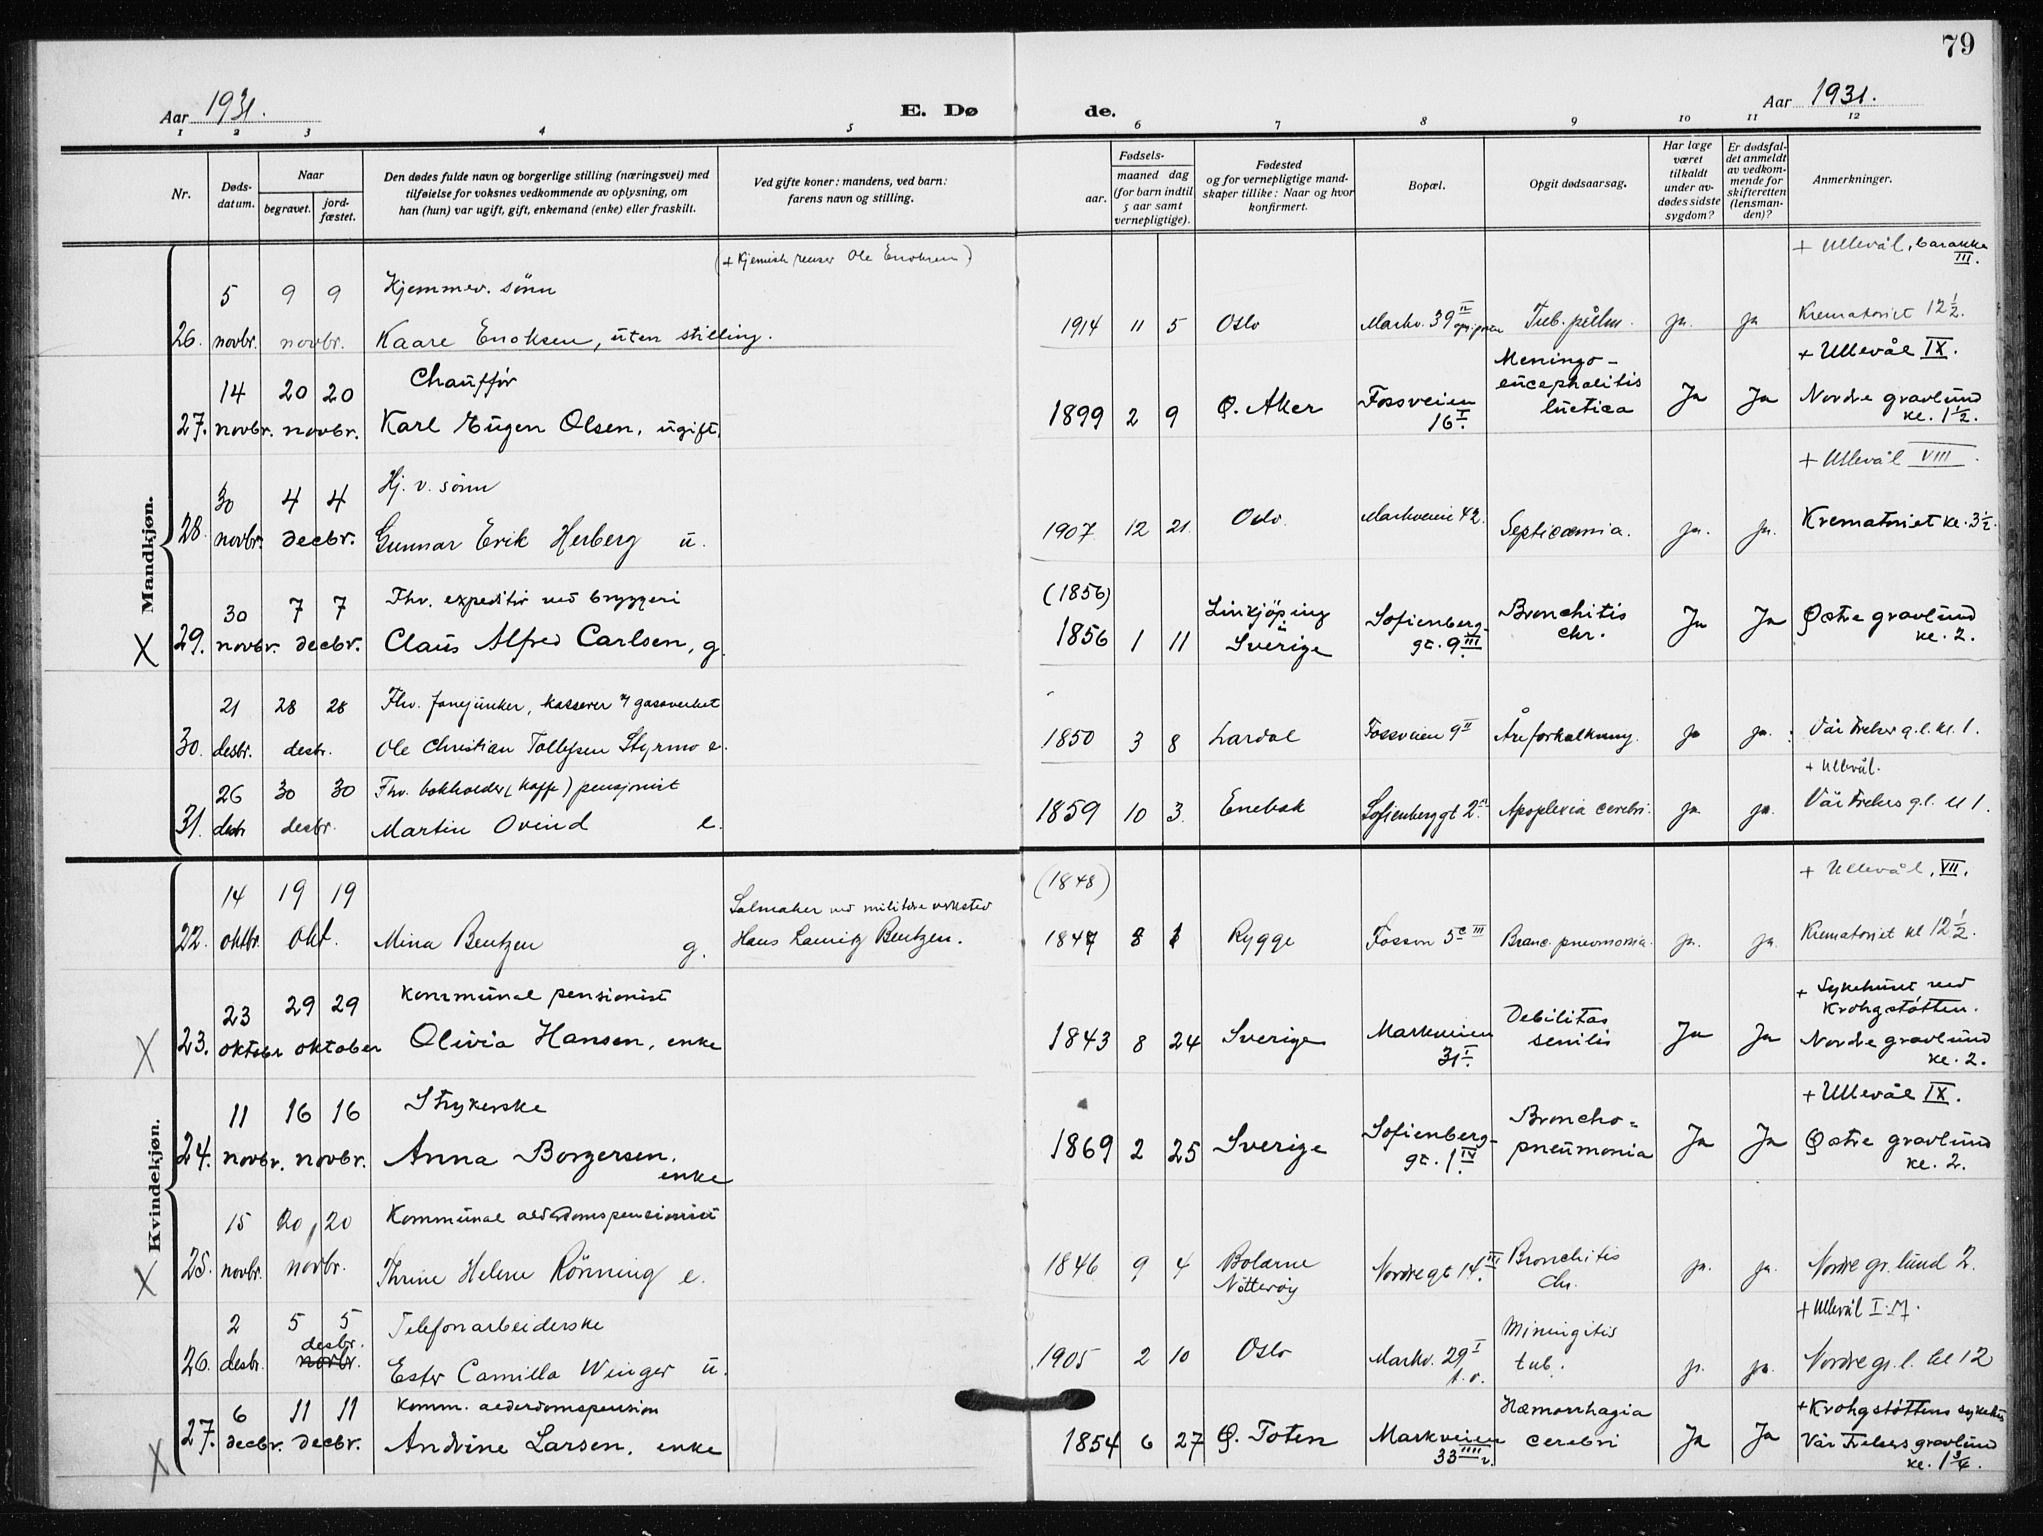 79
Aar 1931.
E. Dø de.
Aar 1931.
1 2 3 4 5 6 7 8 9 10 11 12
Nr.
Døds-
datum.
Naar
begravet.
jord-
fæstet.
Den dødes fulde navn og borgerlige stilling (næringsvei) med
tilføielse for voksnes vedkommende av oplysning, om
han (hun) var ugift, gift, enkemand (enke) eller fraskilt.
Ved gifte koner: mandens, ved barn:
farens navn og stilling.
Fødsels-
aar.
maaned dag
(for barn indtil
5 aar samt
vernepligtige).
Fødested
og for vernepligtige mand-
skaper tillike: Naar og hvor
konfirmert.
Bopæl.
Opgit dødsaarsag.
Har læge
været
tilkaldt
under av-
dødes sidste
sygdom?
Er dødsfal-
det anmeldt
av vedkom-
mende for
skifteretten
(lensman-
den)?
Anmerkninger.
Mandkjøn.
(+ Kjemisk renser Ole Enoksen) + Ullevål, barakke
III.
5 9 9 Hjemmev. sønn
26. novbr. novbr. Kaare Enoksen, uten stilling. 1914 11 5 Oslo Markv. 39 II Tub. pulm. ja. ja Krematoriet 12 1/2.
14 20 20 Chauffør Meningo- + Ullevål IX.
27. novbr. novbr. Karl Eugen Olsen, ugift. 1899 2 9 Ø. Aker Fossveien encephalitis Ja Ja Nordre gravlund
16 I. luetica kl. 1 1/2.
+ Ullevål VIII.
30 4 4 Hj. v. sønn
28. novbr. decbr. Gunnar Erik Herberg u. 1907 12 21 Oslo. Markveien 42. Septicæmia. ja. ja. Krematoriet kl. 3 1/2.
30 7 7 Fhv. expeditør ved bryggeri (1856) Linkjöping Bronchitis
X 29. novbr. decbr. Claus Alfred Carlsen, g. 1856 1 11 Sverige Sofienberg- chr. Ja Ja Østre gravlund
gt. 9 III. kl. 2.
21 28 28 Fhv. fanejunker, kasserer v/ gasverket
30. desbr. desbr. Ole Christian Tollefsen Styrmo e. 1850 3 8 Lardal Fossveien 9 II Åreforkalkning. ja ja. Vår Frelser g.l. kl. 1.
+ Ullevål.
26 30 30 Fhv. bokholder (kaffe) pensjonist
31. desbr desbr. Martin Ovind e. 1859 10 3. Enebak Sofienberggt 2 Apoplexia cerebri. ja. ja. Vår Frelsers g.l. kl 1.
Kvindekjøn.
(1848) + Ullevål, VII.
14 19 19 Salmaker ved militære verksted
22. oktbr. okt. Mina Bentzen g. Hans Lauritz Bentzen. 1847 8 1 Rygge Fossvn 5 c III Bronc. pneumonia. ja. ja. Krematoriet kl 12 1/2.
23 29 29 Kommunal pensionist + Sykehuset ved
Krohgstøtten.
X 23. oktober oktober Olivia Hansen, enke 1843 8 24 Sverige Markveien Debilitas Ja Ja Nordre gravlund
31 I. senilis kl. 2.
11 16 16 Strykerske + Ullevål IX.
24. novbr. novbr. Anna Borgersen, 1869 2 25 Sverige Sofienberg- Broncho= Ja Ja Østre gravlund
enke gt. 1 IV. pneumonia kl. 2.
15 20 20 Kommunal alderdomspensionist
X 25. novbr. novbr. Thrine Helene Rönning e. 1846 9 4 Bolærne Nordregt 14 III. Bronchitis ja. ja. Nordre gr. lund 2.
Nøtterøy chr.
2 5 5 Telefonarbeiderske + Ullevål I. M.
26. desbr. desbr. novbr. Ester Camilla Winger u. 1905 2 10 Oslo Markv. 29 I Miningitis ja. ja. Nordre gr. l. kl 12
t. o. tub.
6 11 11 Komm. alderdomspension Hæmorrhagia + Krohgstøttens sykehus
X 27. decbr. decbr. Andrine Larsen, enke 1854 6 27 Ø. Toten Markveien cerebri Ja Ja Vår Frelsers gravlund
33 IIII v. kl. 1 3/4.